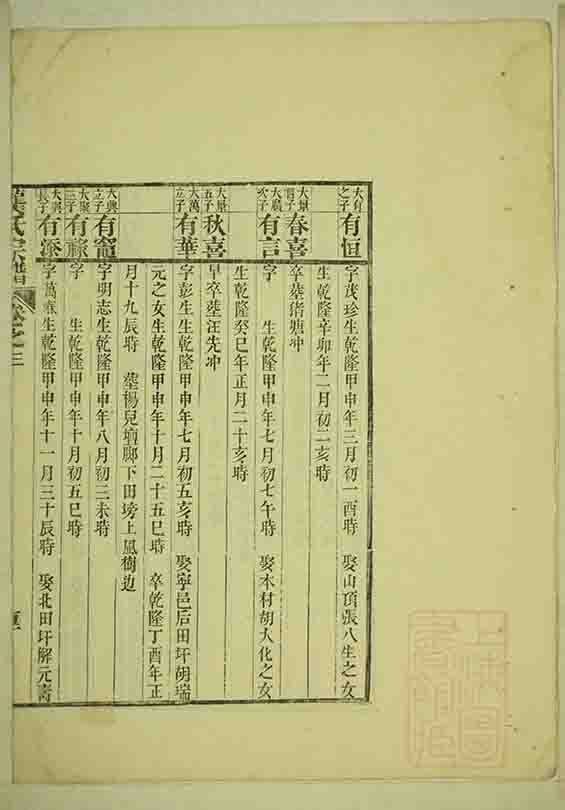 大有之子
有恒
字茂珍生乾隆甲申年三月初一酉時 娶山頂張八生之女
生乾隆辛卯年二月初二亥時
大景
春喜
卒塟猪塘冲
有言
字 生乾隆甲申年七月初七午時 娶本村胡大化之女
生乾隆癸巳年正月二十亥時
大景五子
秋喜
早卒塟汪先冲
大萬立子
有華
字彭生生乾隆甲申年七月初五亥時 娶寧邑后田圩胡瑞
元之女生乾隆甲申年十月二十五巳時 卒乾隆丁酉年正
月十九辰時 塟楊兒壇脚下田塝上風樹边
大興立子
有竉
字明志生乾隆甲申年八月初二未時
大聚三子
有祿
字 生乾隆甲申年十月初五巳時
大興長子
有添
字萬春生乾隆甲申年十一月三十辰時 娶北田圩解元壽
氏宗譜 卷之三
上海圖書館藏